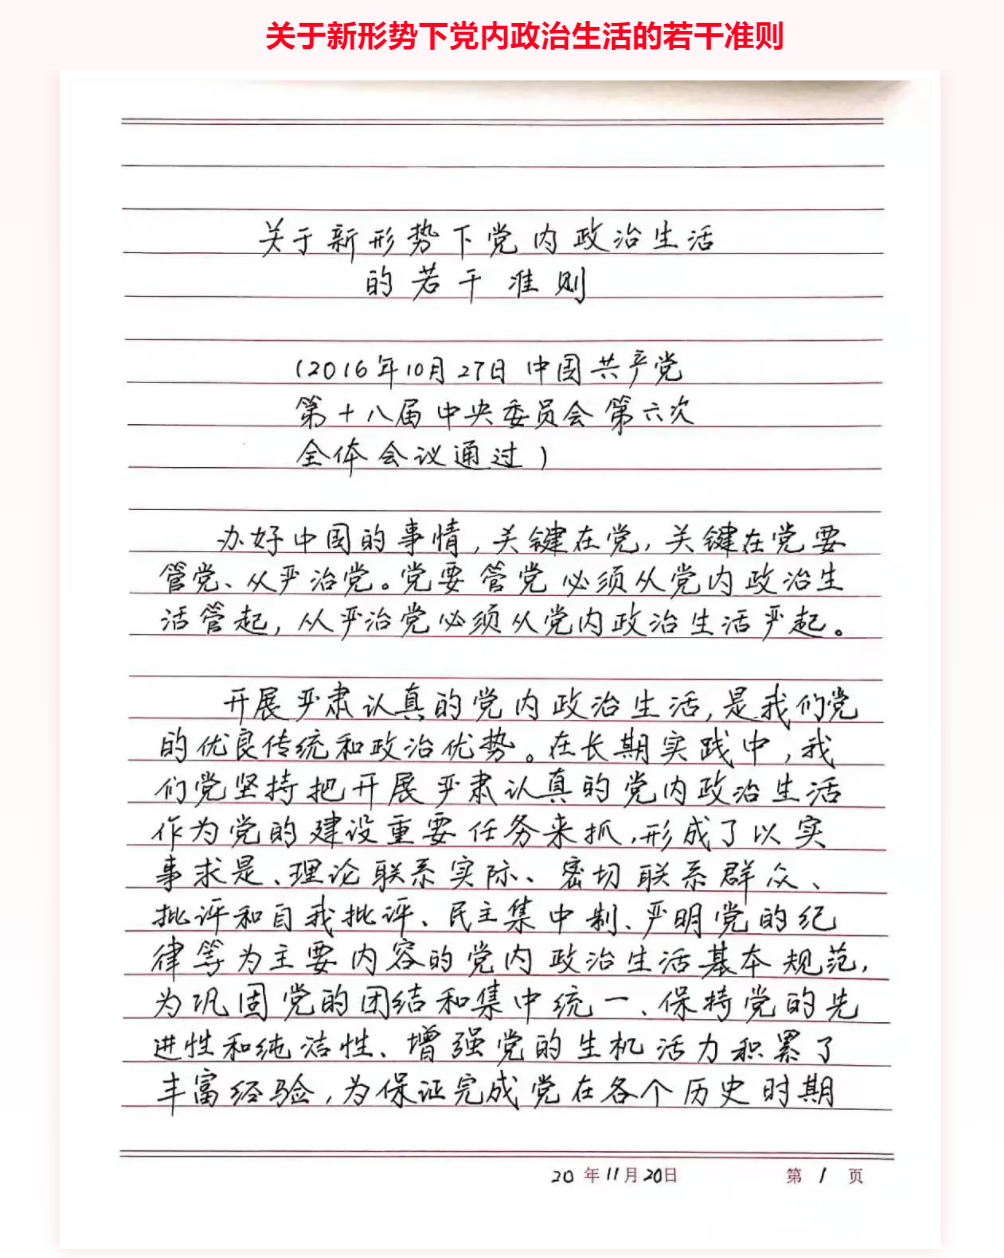 关于新形势下党内政治生活的若干准则
关于新形势下党内政治生活
的若干准则
(2016年10月27日中国共产党
第十八届中央委员会第六次
全体会议通过)
办好中国的事情,关键在党,关键在党要
管党、从严治党。党要管党必须从党内政治生
活管起,从严治党必须从党内政治生活严起。
开展严肃认真的党内政治生活,是我们党
的优良传统和政治优势。在长期实践中,我
们党坚持把开展严肃认真的党内政治生活
作为党的建设重要任务来抓,形成了以实
事求是、理论联系实际、密切联系群众、
批评和自我批评、民主集中制、严明党的纪
律等为主要内容的党内政治生活基本规范,
为巩固党的团结和集中统一、保持党的先
进性和纯洁性、增强党的生机活力积累了
丰富经验,为保证完成党在各个历史时期
20 年 11月 20日 第 1 页